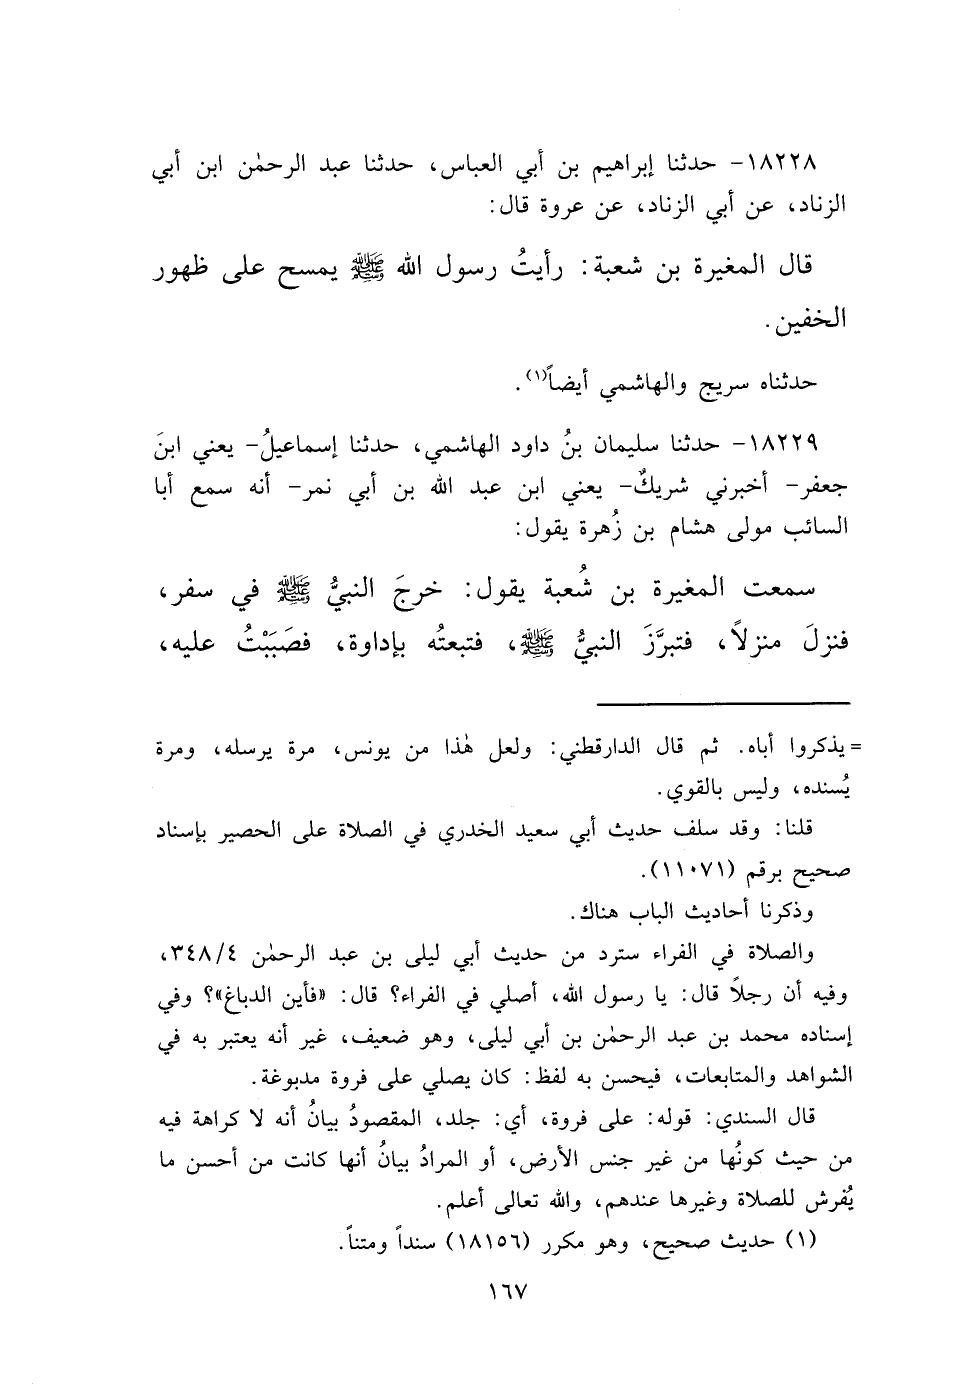 ١٨٢٢٨- حدثنا إبراهيم بن أبي العباس، حدثنا عبد الرحمٰن ابن أبي
الزناد، عن أبي الزناد، عن عروة قال:
قال المغيرة بن شعبة: رأيتُ رسول الله ﷺ يمسح على ظهور
الخفين.
حدثناه سريج والهاشمي أيضاً(١).
١٨٢٢٩- حدثنا سليمان بنُ داود الهاشمي، حدثنا إسماعيلُ- يعني ابنَ
جعفر- أخبرني شريكٌ- يعني ابن عبد الله بن أبي نمر- أنه سمع أبا
السائب مولى هشام بن زُهرة يقول:
سمعت المغيرة بن شُعبة يقول: خرجَ النبيُّ ﷺ في سفر،
فنزلَ منزلاً، فتبرَّزَ النبيُّ ﷺ، فتبعتُه بإداوة، فصَبَبْتُ عليه،
= يذكروا أباه. ثم قال الدارقطني: ولعل هٰذا من يونس، مرة يرسله، ومرة
يُسنده، وليس بالقوي.
قلنا: وقد سلف حديث أبي سعيد الخدري في الصلاة على الحصير بإسناد
صحيح برقم (١١٠٧١).
وذكرنا أحاديث الباب هناك.
والصلاة في الفراء سترد من حديث أبي ليلى بن عبد الرحمٰن ٣٤٨/٤،
وفيه أن رجلاً قال: يا رسول الله، أصلي في الفراء؟ قال: «فأين الدباغ»؟ وفي
إسناده محمد بن عبد الرحمٰن بن أبي ليلى، وهو ضعيف، غير أنه يعتبر به في
الشواهد والمتابعات، فيحسن به لفظ: كان يصلي على فروة مدبوغة.
قال السندي: قوله: على فروة، أي: جلد، المقصودُ بيانُ أنه لا كراهة فيه
من حيث كونُها من غير جنس الأرض، أو المرادُ بيانُ أنها كانت من أحسن ما
يُفرش للصلاة وغيرها عندهم، والله تعالى أعلم.
(١) حديث صحيح، وهو مكرر (١٨١٥٦) سنداً ومتناً.
١٦٧